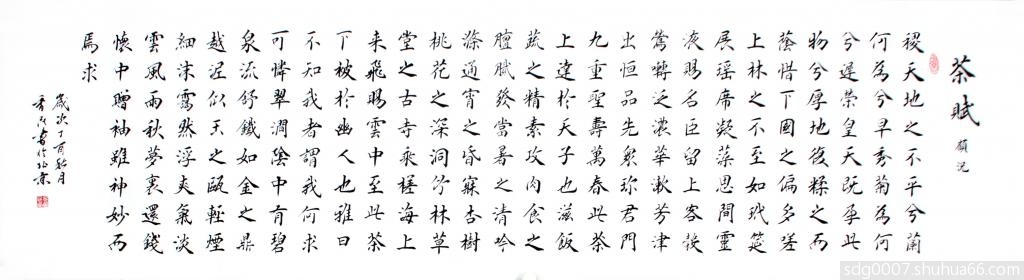 茶賦
顧况
稷天地之不平兮蘭
何為兮早秀菊為何
兮遲榮皇天既孕此
物兮厚地復糅之而
蔭惜下國之偏多嗟
上林之不至如玳筵
展瑶席凝藻思間靈
液賜名臣留上客
鶯囀泛濃華漱芳津
出恒品先衆珍君門
九重聖壽萬春此茶
上達於天子也滋飯
蔬之精素攻肉食之
膻膩發當暑之清吟
滌通宵之昏寐杏樹
桃花之深洞竹林草
堂之古寺乘槎海上
来飛賜雲中至此茶
下被於幽人也雅曰
不知我者謂我何求
可憐翠澗陰中有碧
泉流舒鐵如金之鼎
越泥似玉之甌輕煙
細沫靄然浮爽氣淡
雲風雨秋夢裏還錢
懷中贈袖雖神妙而
焉求
歲次丁酉秋月
書於北京
sdg0007.shuhua66.com